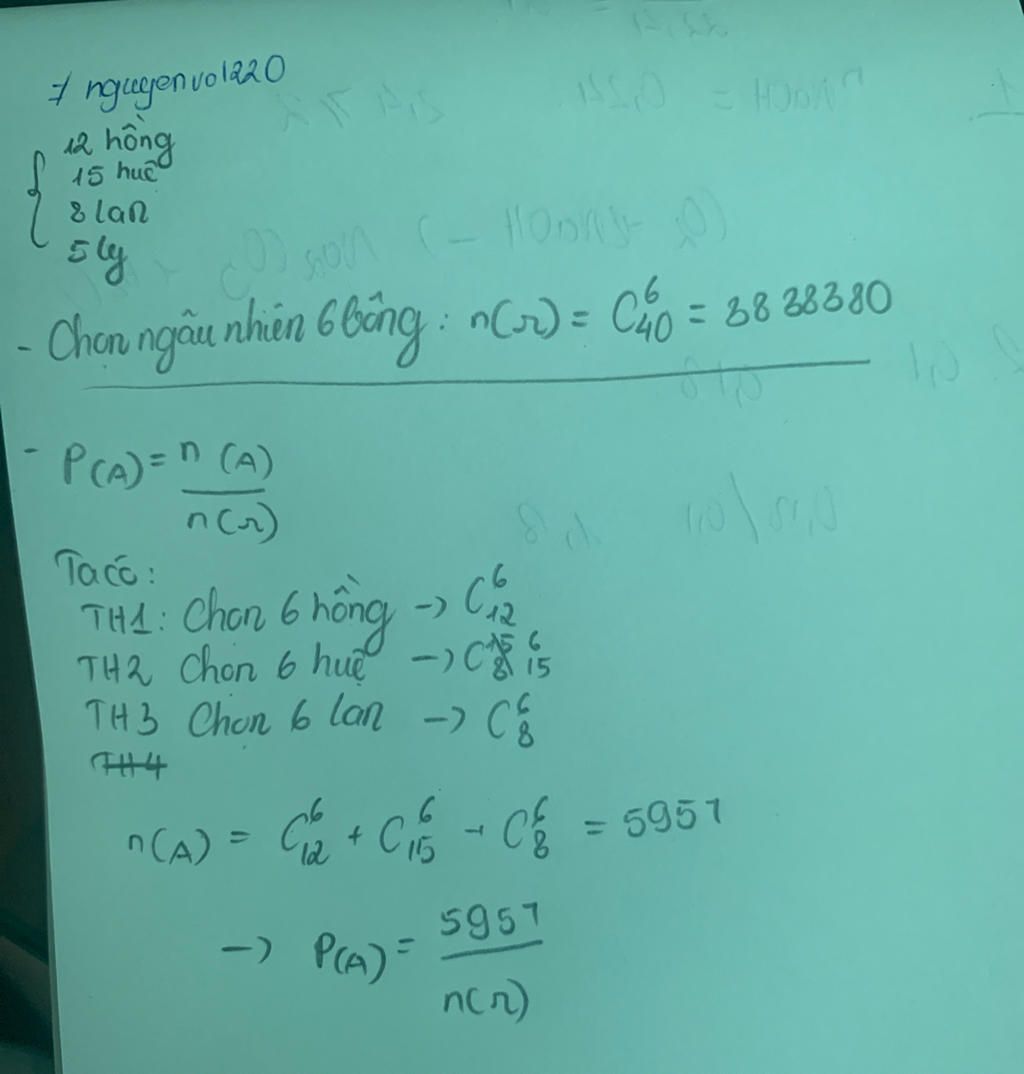 ≠ nguyenvo1220
12 hồng
15 huệ
8 lan
5 ly
- Chọn ngẫu nhiên 6 bông : n(Ω) = C⁶₄₀ = 3838380
- P(A) = n(A) / n(Ω)
Ta có :
TH1 : Chọn 6 hồng -> C⁶₁₂
TH2 Chọn 6 huệ -> C⁶₁₅
TH3 Chọn 6 lan -> C⁶₈
TH4
n(A) = C⁶₁₂ + C⁶₁₅ + C⁶₈ = 5957
-> P(A) = 5957 / n(Ω)